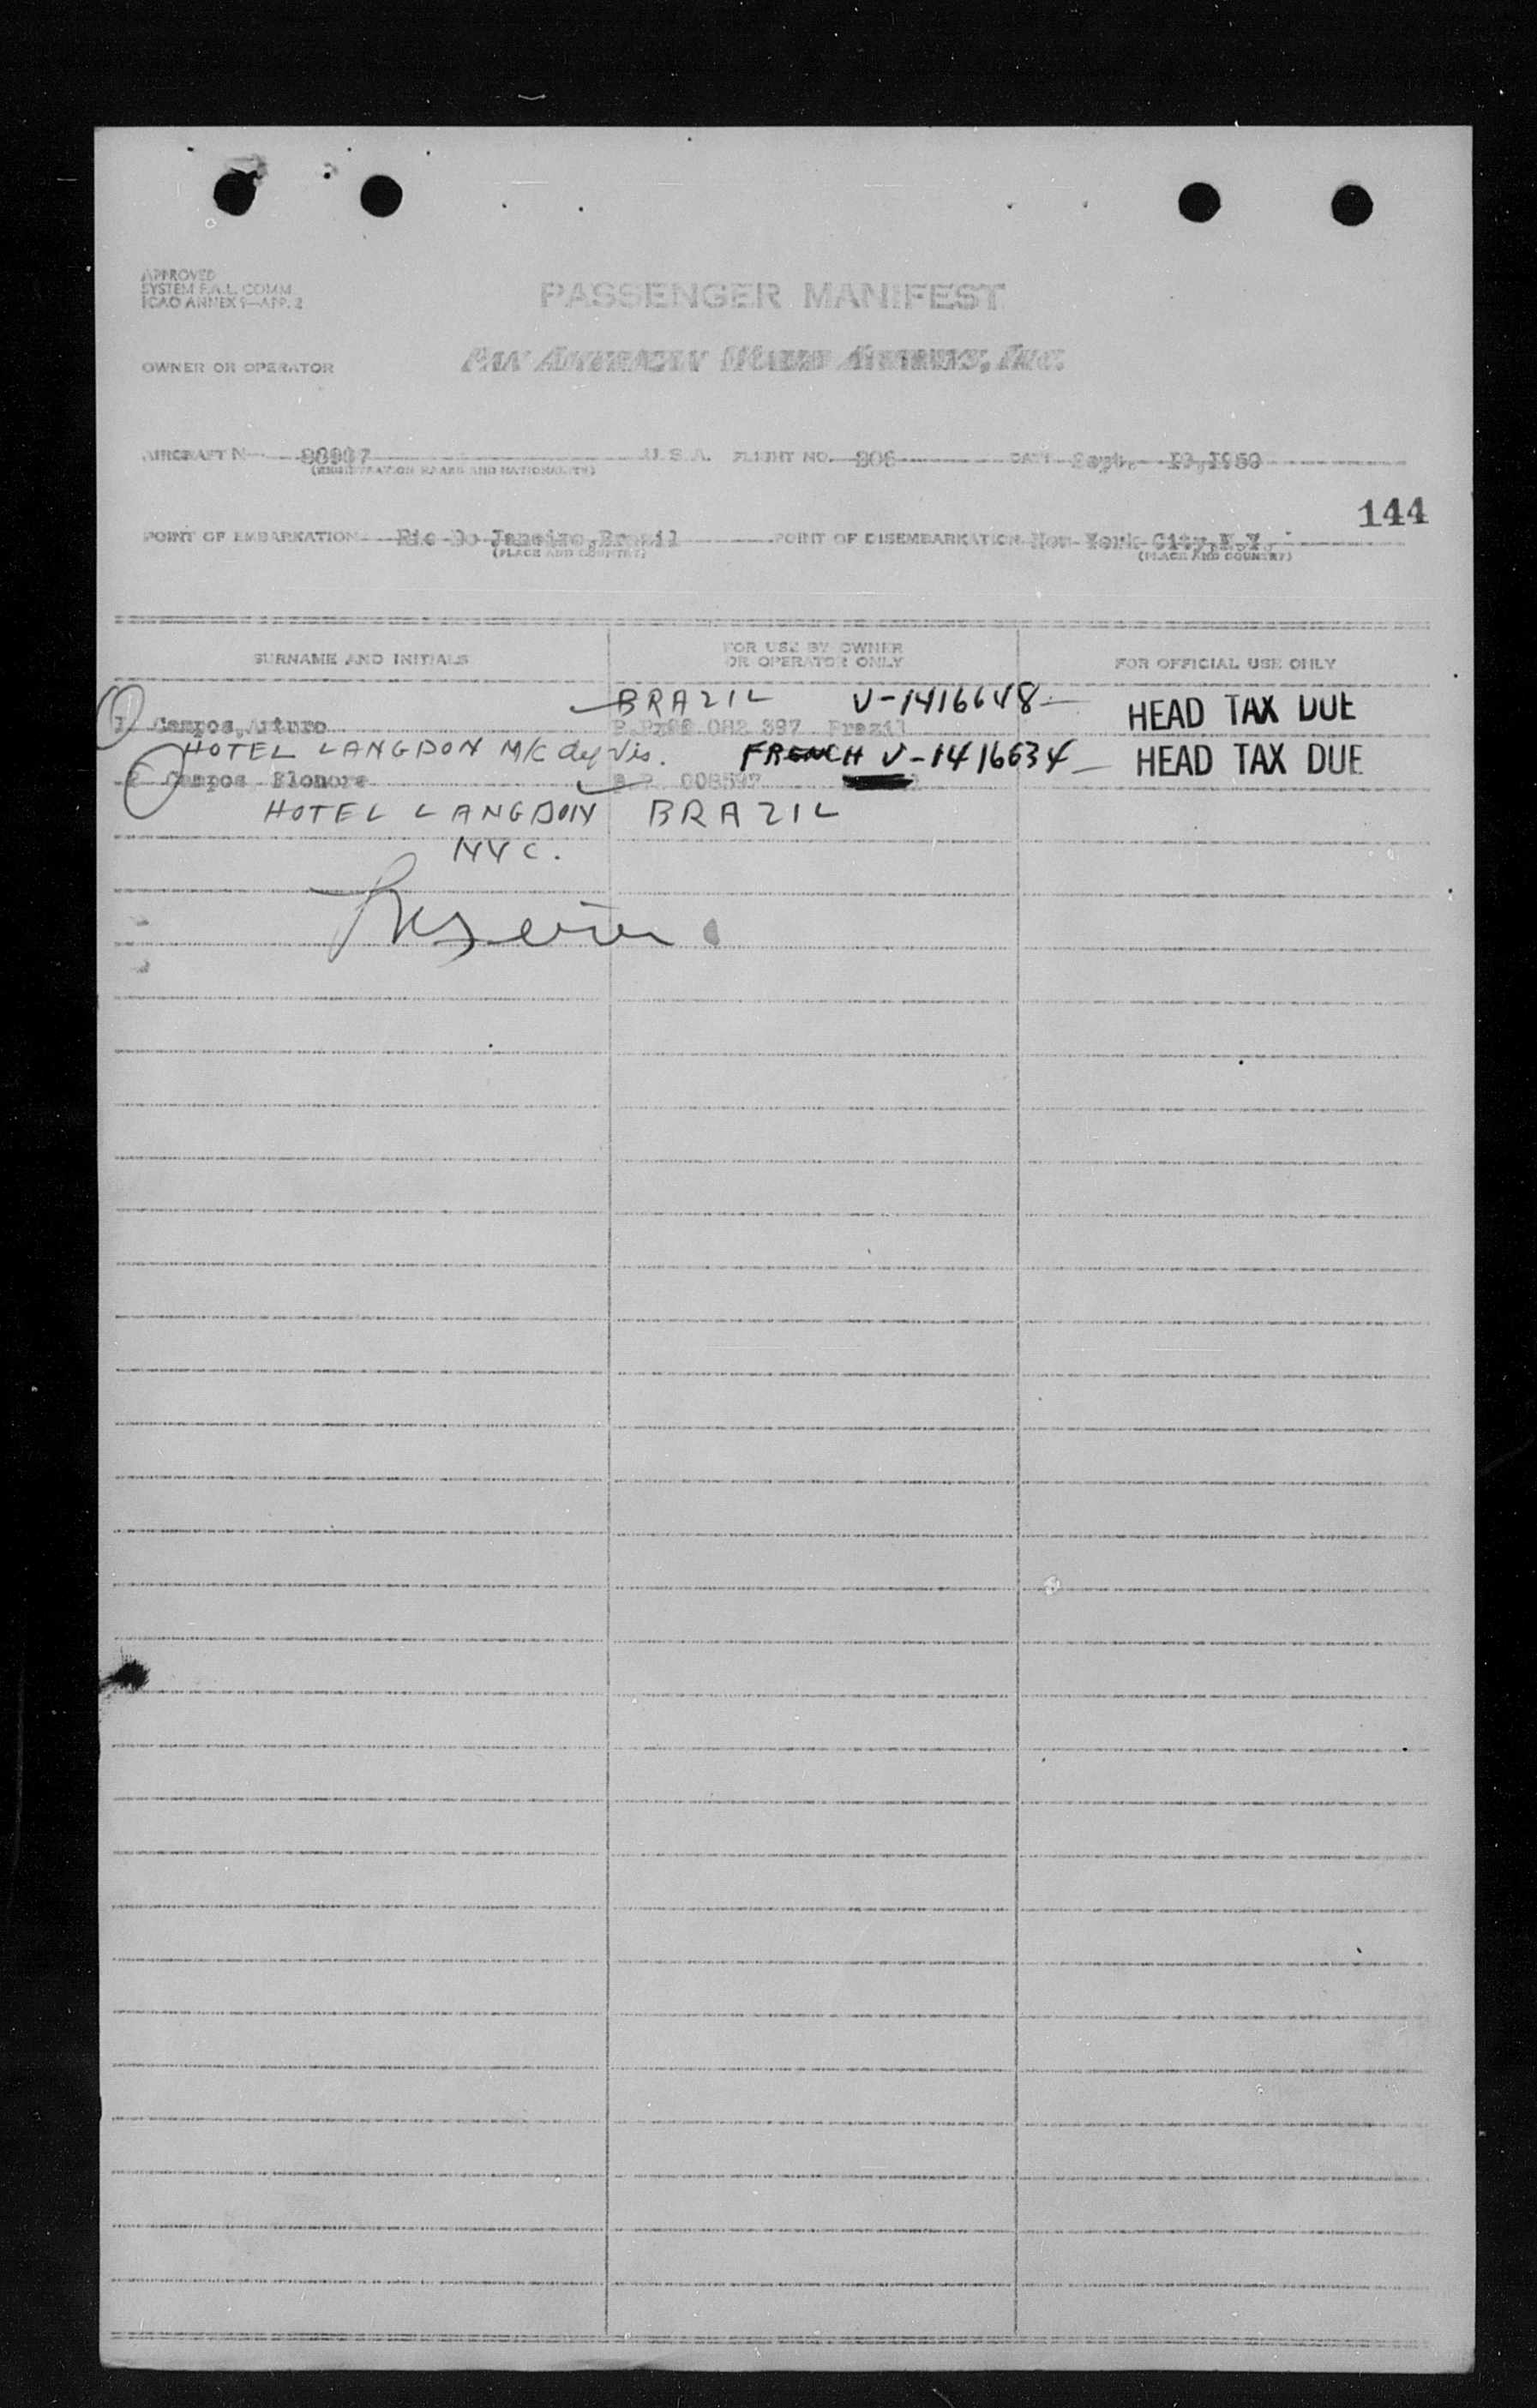 APPROVED
SYSTEM F.A.L. COMM.
ICAO ANNEX 9—APP. 2
PASSENGER MANIFEST
OWNER OR OPERATOR
PAN AMERICAN WORLD AIRWAYS, INC.
AIRCRAFT N U.S.A. FLIGHT NO. 206 DATE Sept. 1950
(REGISTRATION MARKS AND NATIONALITY)
144
POINT OF EMBARKATION Rio Do Janeiro, Brazil POINT OF DISEMBARKATION New York City, N.Y.
(PLACE AND COUNTRY) (PLACE AND COUNTRY)
SURNAME AND INITIALS
FOR USE BY OWNER
OR OPERATOR ONLY
FOR OFFICIAL USE ONLY
BRAZIL V-1416648 HEAD TAX DUE
1 Campos, Arturo 082 397 Brazil
HOTEL LANGDON N/C Vis. FRENCH V-1416634 HEAD TAX DUE
2 Campos Elonore
HOTEL LANGDON BRAZIL
NYC.